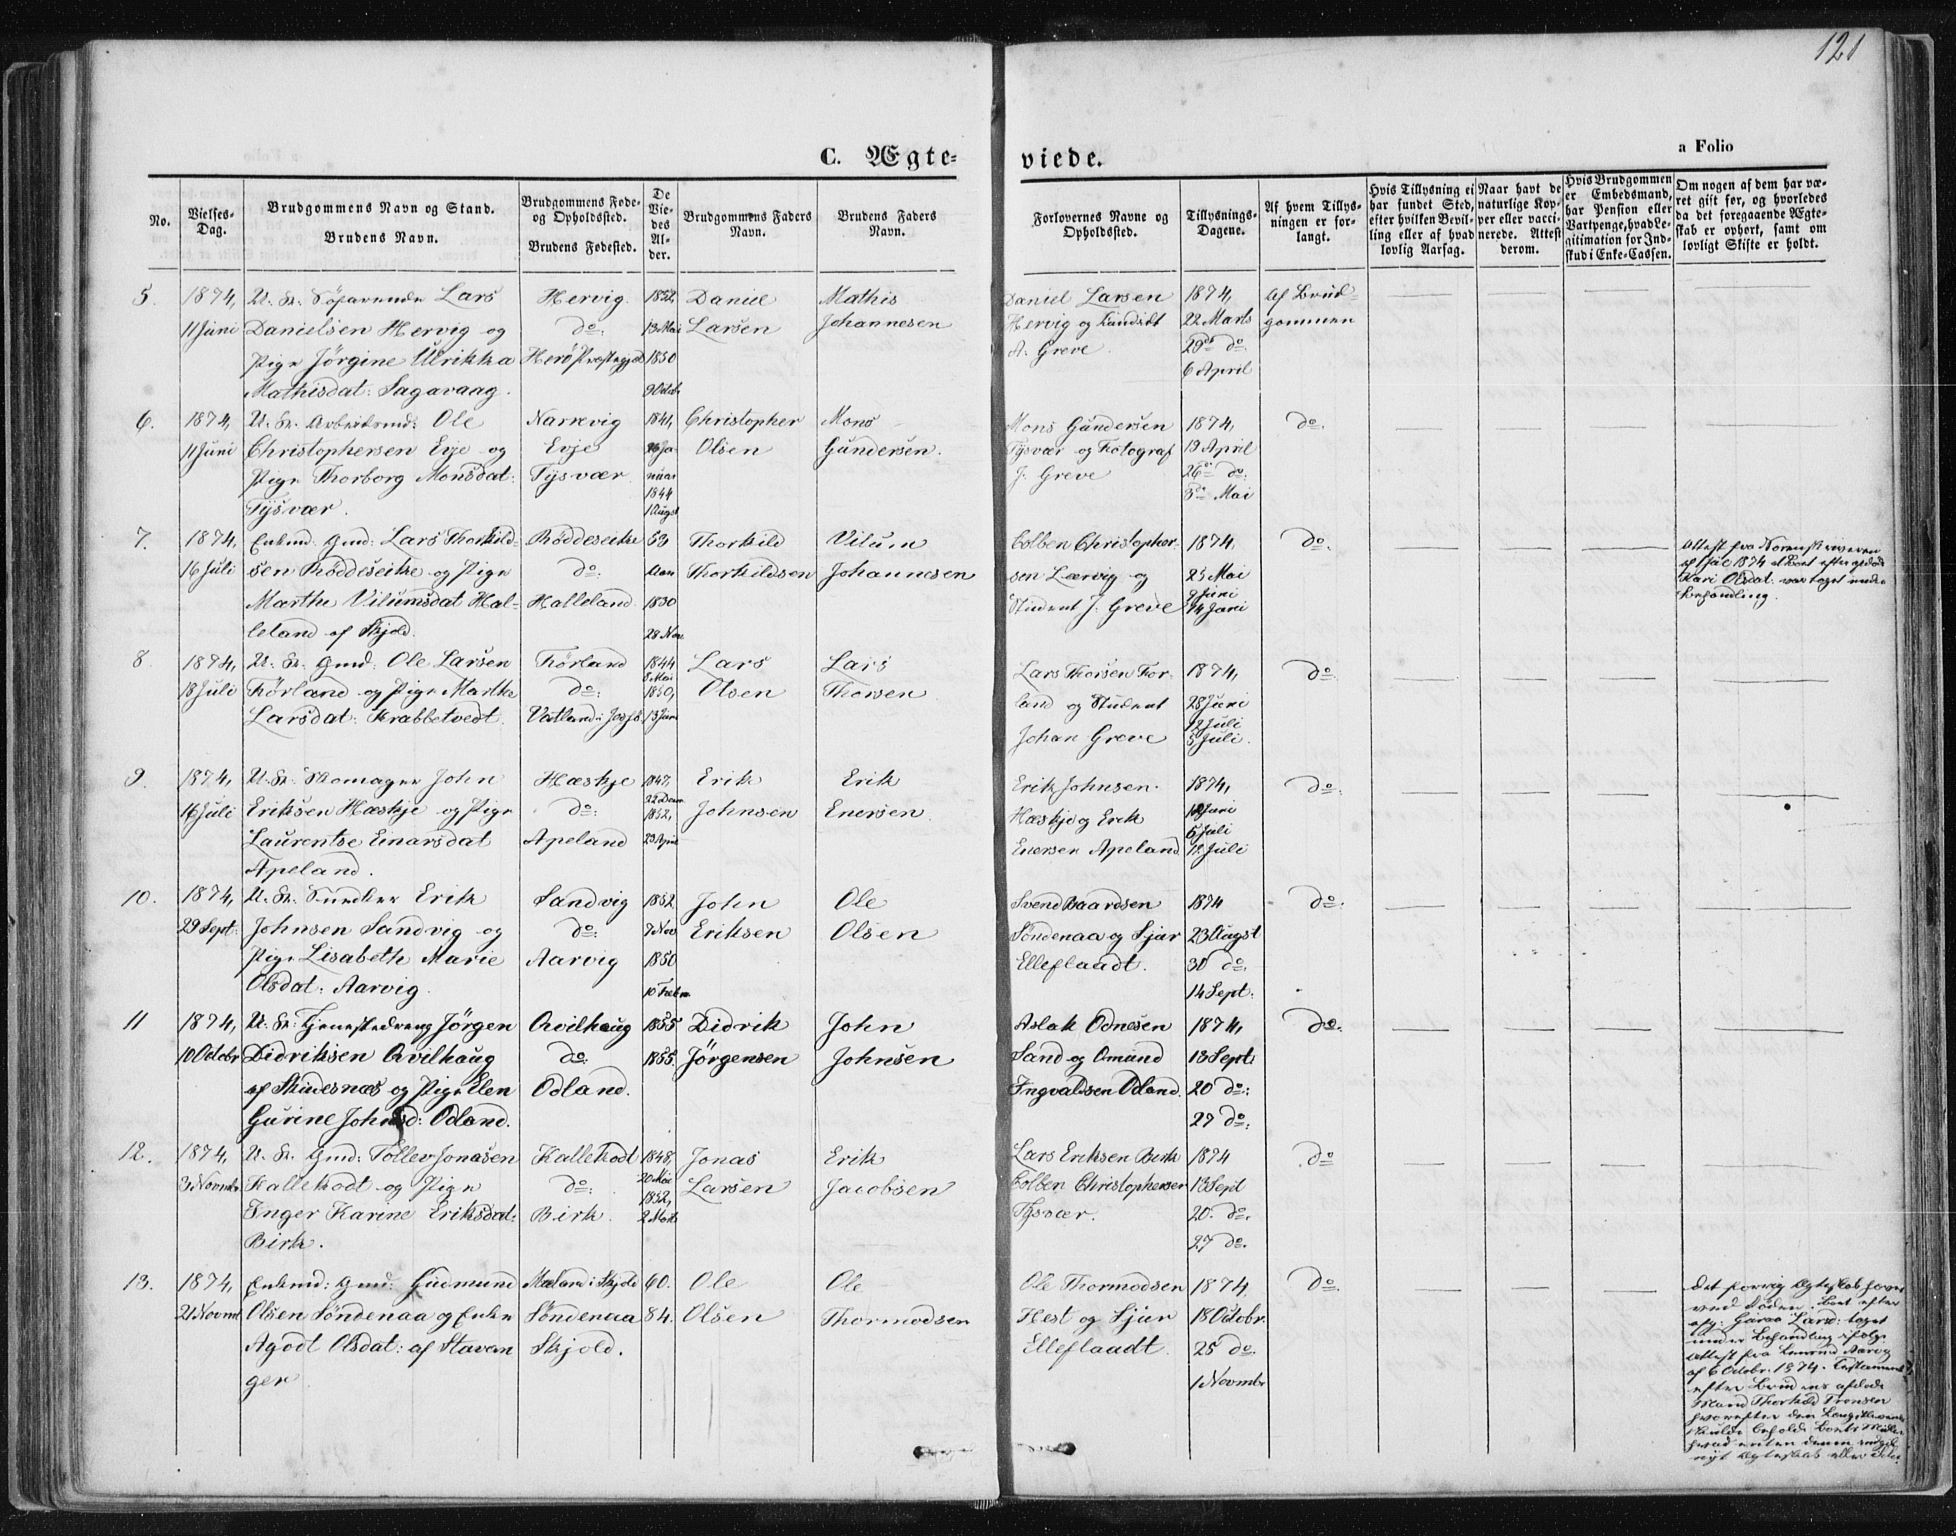 121
C. Ægte-
viede.
a Folio
No.
Vielses-
Dag.
Brudgommens Navn og Stand.
Brudens Navn.
Brudgommens Føde-
og Opholdssted.
Brudens Fødested.
De
Vie-
des
Al-
der.
Brudgommens Faders
Navn.
Brudens Faders
Navn.
Forlovernes Navne og
Opholdssted.
Tillysnings-
Dagene.
Af hvem Tillys-
ningen er for-
langt.
Hvis Tillysning ei
har fundet Sted,
efter hvilken Bevil-
ling eller af hvad
lovlig Aarsag.
Naar havt de
naturlige Kop-
per eller vacci-
nerede. Attest
derom.
Hvis Brudgommen
er Embedsmand,
har Pension eller
Vartpenge, hvad Le-
gitimation for Ind-
skud i Enke-Cassen.
Om nogen af dem har væ-
ret gift før, og hvorledes
da det foregaaende Ægte-
skab er ophørt, samt om
lovligt Skifte er holdt.
5.
1874,
11 Juni
U. K. Søfarende Lars
Danielsen Hervig og
Pige Jørgine Ulrikka
Mathisdat: Sagavaag.
Hervig.
do:
Herø Præstegjeld
1852,
13 Mai
1850
9 Octob
Daniel
Larsen
Mathis
Johannesen
Daniel Larsen
Hervig og
A. Greve.
1874,
22 Marts
29de do:
6 April
Af Brud-
gommen
6.
1874,
11 Juni
U. K. Arbeidsmd: Ole
Christophersen Eije og
Pige Thorborg Monsdat:
Tysvær.
Narrevig
Eije
Tysvær
1841,
26 Ja-
nuar
1844
1 Augst
Christopher
Olsen
Mons
Gundersen.
Mons Gundersen
Tysvær og Fotograf
J. Greve
1874,
19 April
26de do:
3de Mai
do.
7.
1874,
16 Juli
Enkmd: Gmd: Lars Thorkild-
sen Røddeseike og Pige
Marthe Vilumsdat Hal-
leland af Skjold.
Røddeseike
do:
Halleland
53
Aar
1830
28 Nov.
Thorkild
Thorkildsen
Vilum
Johannesen
Colben Christopher-
sen Lærvig og
Student J. Greve
1874,
25 Mai
7 Juni
14 Juni
do.
Attest fra Sorenskriveren
af 1 Juli 1874 at Boet efter afdøde
Kari Olsdat: var taget under
Behandling.
8.
1874,
18 Juli
U. K. Gmd: Ole Larsen
Førland og Pige Marthe
Larsdat: Krabbetvedt.
Førland
do:
1844
8 Mai
1850,
13 Juni
Lars
Olsen
Lars
Thorsen
Lars Thorsen For-
land og Student
Johan Greve
1874,
28 Juni
12 Juli
5 Juli.
do.
9.
1874,
16 Juli
U. K. Skomager John
Eriksen Hæskje og Pige
Laurentse Einarsdat
Apeland.
Hæskje
do:
Apeland
1847,
22 Decm
1852,
23 April
Erik
Johnsen
Erik
Enersen.
Erik Johnsen
Hæskje og Erik
Enersen Apeland
1874,
Juni
5 Juli
12 Juli
do.
10.
1874,
29 Sept:
U. K. Snedker Erik
Johnsen Sandvig og
Pige Lisabeth Marie
Olsdat: Aarvig.
Sandvig
do:
Aarvig
1852
7 Nov
1850
10 Febr
John
Eriksen
Ole
Olsen
Svend Baardsen
Søndenaa og Sjur
Elleflaadt.
1874
23 Augst
30 do.
14 Sept:
do.
11
1874,
10 Octobr
U. K: Tjenestedreng Jørgen
Didriksen Qvilhaug
af Skudesnæs og Pige Elen
Gurine Johnsd: Odland.
Qvilhaug
do:
Odland.
1855
1855
Didrik
Jørgensen
John
Johnsen
Aslak Odnesen
Sand og Omund
Ingvaldsen Odland.
1874,
13 Sept
20 do:
27 do.
do.
12.
1874,
3 Novmbr
U. K. Gmd: Tollev Jonasen
Kallekodt og Pige
Inger Karine Eriksdat:
Birk.
Kallekodt
do:
Birk.
1848,
20 Mai
1852,
2 Marts
Jonas
Larsen
Erik
Jacobsen
Lars Eriksen Birk
Colben Christophersen
Tysvær.
1874
13 Sept
20. do.
27 do.
do
13.
1874,
21 Novmb
Enkmd: Gmd: Gudmund
Olsen Søndenaa og Enke
Agodt Olsdat: af Stavan
ger.
Mæland i Skjold
Søndenaa
Skjold.
60.
84.
Ole
Olsen
Ole
Thormodsen
Ole Thormodsen
Hest og Sjur
Elleflaadt.
1874,
18 Octobr.
25 do.
1 Novmbr
do
Det forrige Ægteskab hævet
ved Døden. Boet efter
afg: Larsd: taget
under Behandling ifølge
Attest fra Lensmd Aarvig
af 6 Octobr. 1874. Testament
efter Brudens afdøde
Mand Thorkild Tronsen
hvorefter den Længstlevende
skulde beholde Boets Midler
hvad enten denne indgik
nyt Ægteskab eller ikke